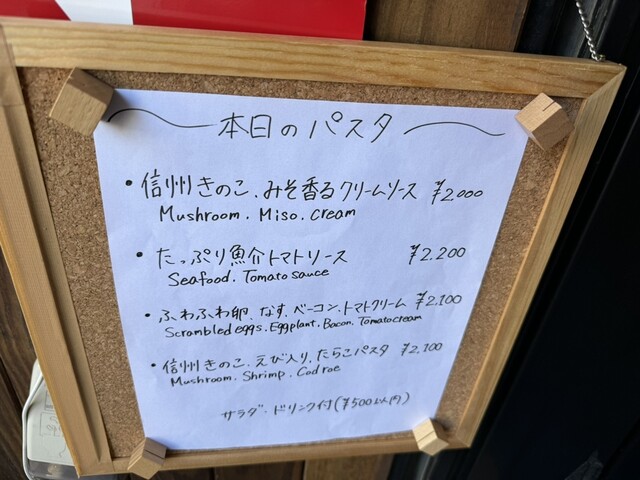 本日のパスタ
・信州きのこ、みそ香るクリームソース ¥2,000
Mushroom. Miso. cream
・たっぷり魚介トマトソース ¥2,200
Seafood. Tomato sauce
・ふわふわ卵、なす、ベーコン、トマトクリーム ¥2,100
Scrambled eggs. Eggplant. Bacon. Tomato cream
・信州きのこ、えび入り、たらこパスタ ¥2,100
Mushroom. Shrimp. Cod roe
サラダ・ドリンク付(¥500以内)